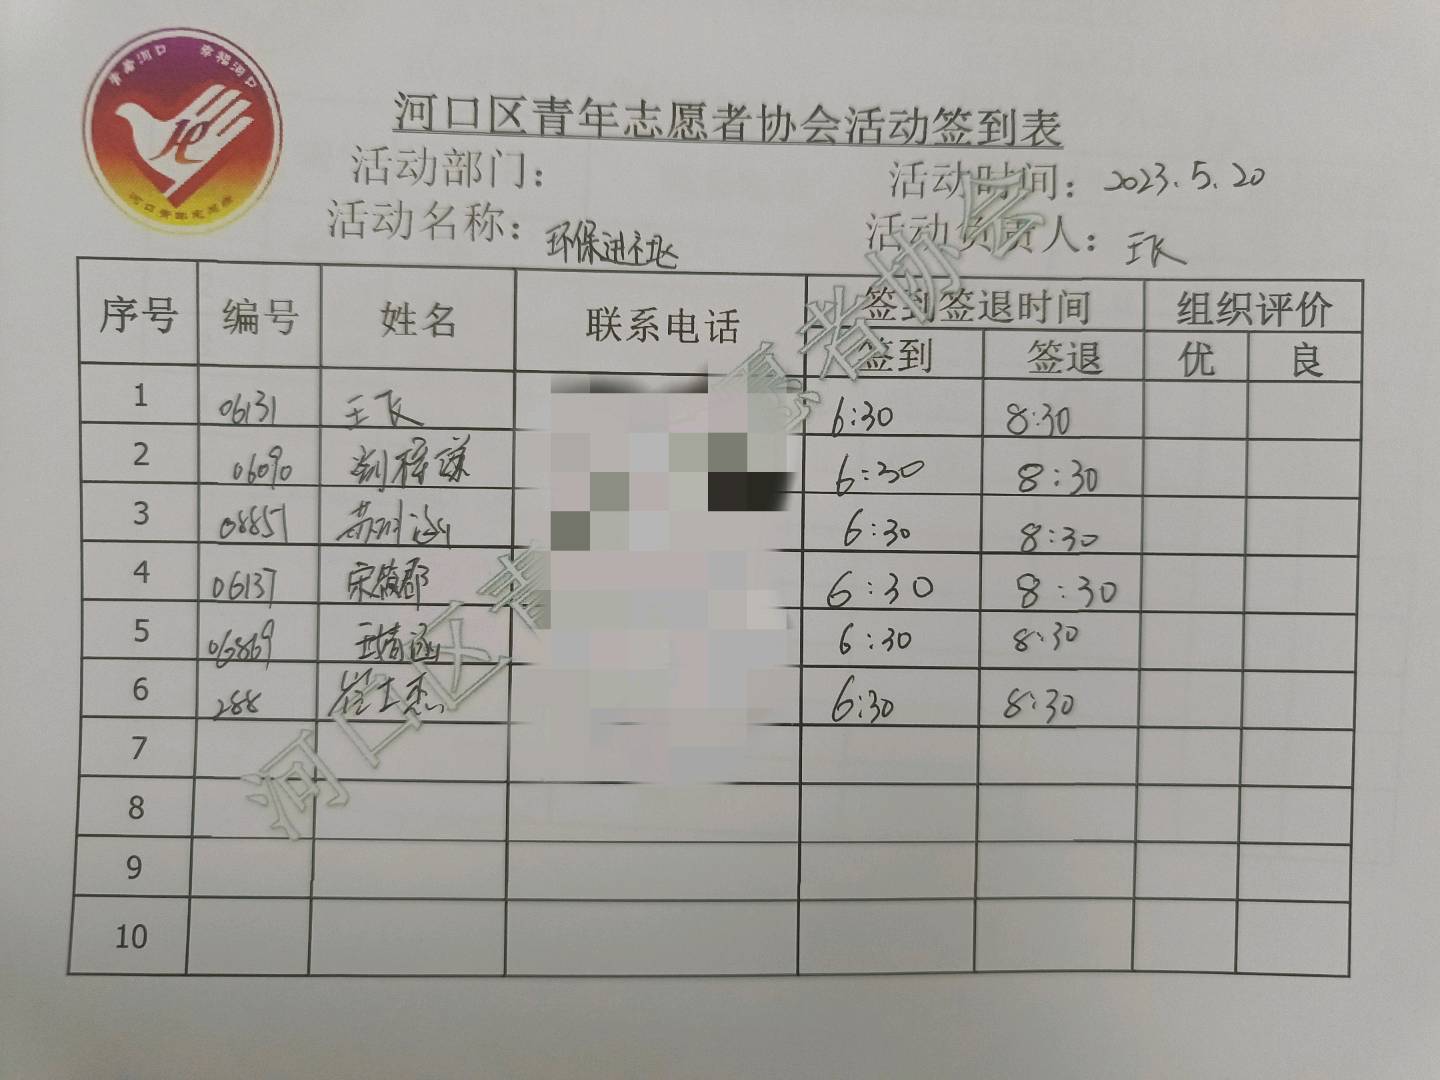 青春河口 幸福河口
河口区青年志愿者协会活动签到表
活动部门：
活动时间：2023.5.20
活动名称：环保进社区
活动负责人：王飞
序号 编号 姓名 联系电话 签到签退时间 组织评价
签到 签退 优 良
1 06131 王飞 6:30 8:30
2 06090 刘梓谋 6:30 8:30
3 08857 苏 6:30 8:30
4 06137 宋镜郡 6:30 8:30
5 06869 王婧涵 6:30 8:30
6 288 崔士杰 6:30 8:30
7
8
9
10
河口区青年志愿者协会